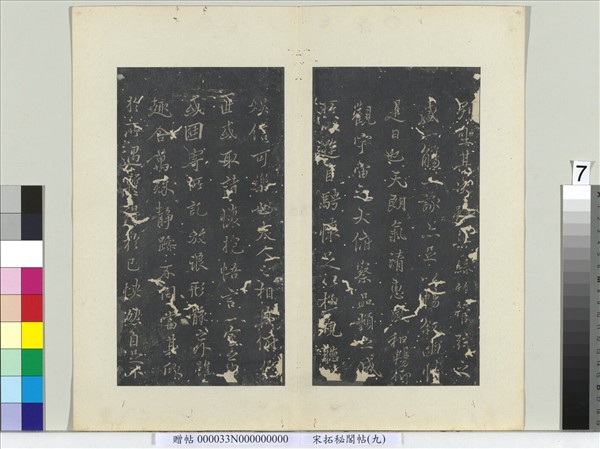 列坐其次雖無絲竹管弦之
盛一觴一詠亦足以暢敘幽情
是日也天朗氣清惠風和暢仰
觀宇宙之大俯察品類之盛
所以遊目騁懷足以極視聽
娛信可樂也夫人之相與俯仰
一世或取諸懷抱悟言一室之內
或因寄所託放浪形骸之外雖
趣舍萬殊靜躁不同當其欣
於所遇暫得於己快然自足不
7
贈帖 000033N000000000 宋拓秘閣帖(九)